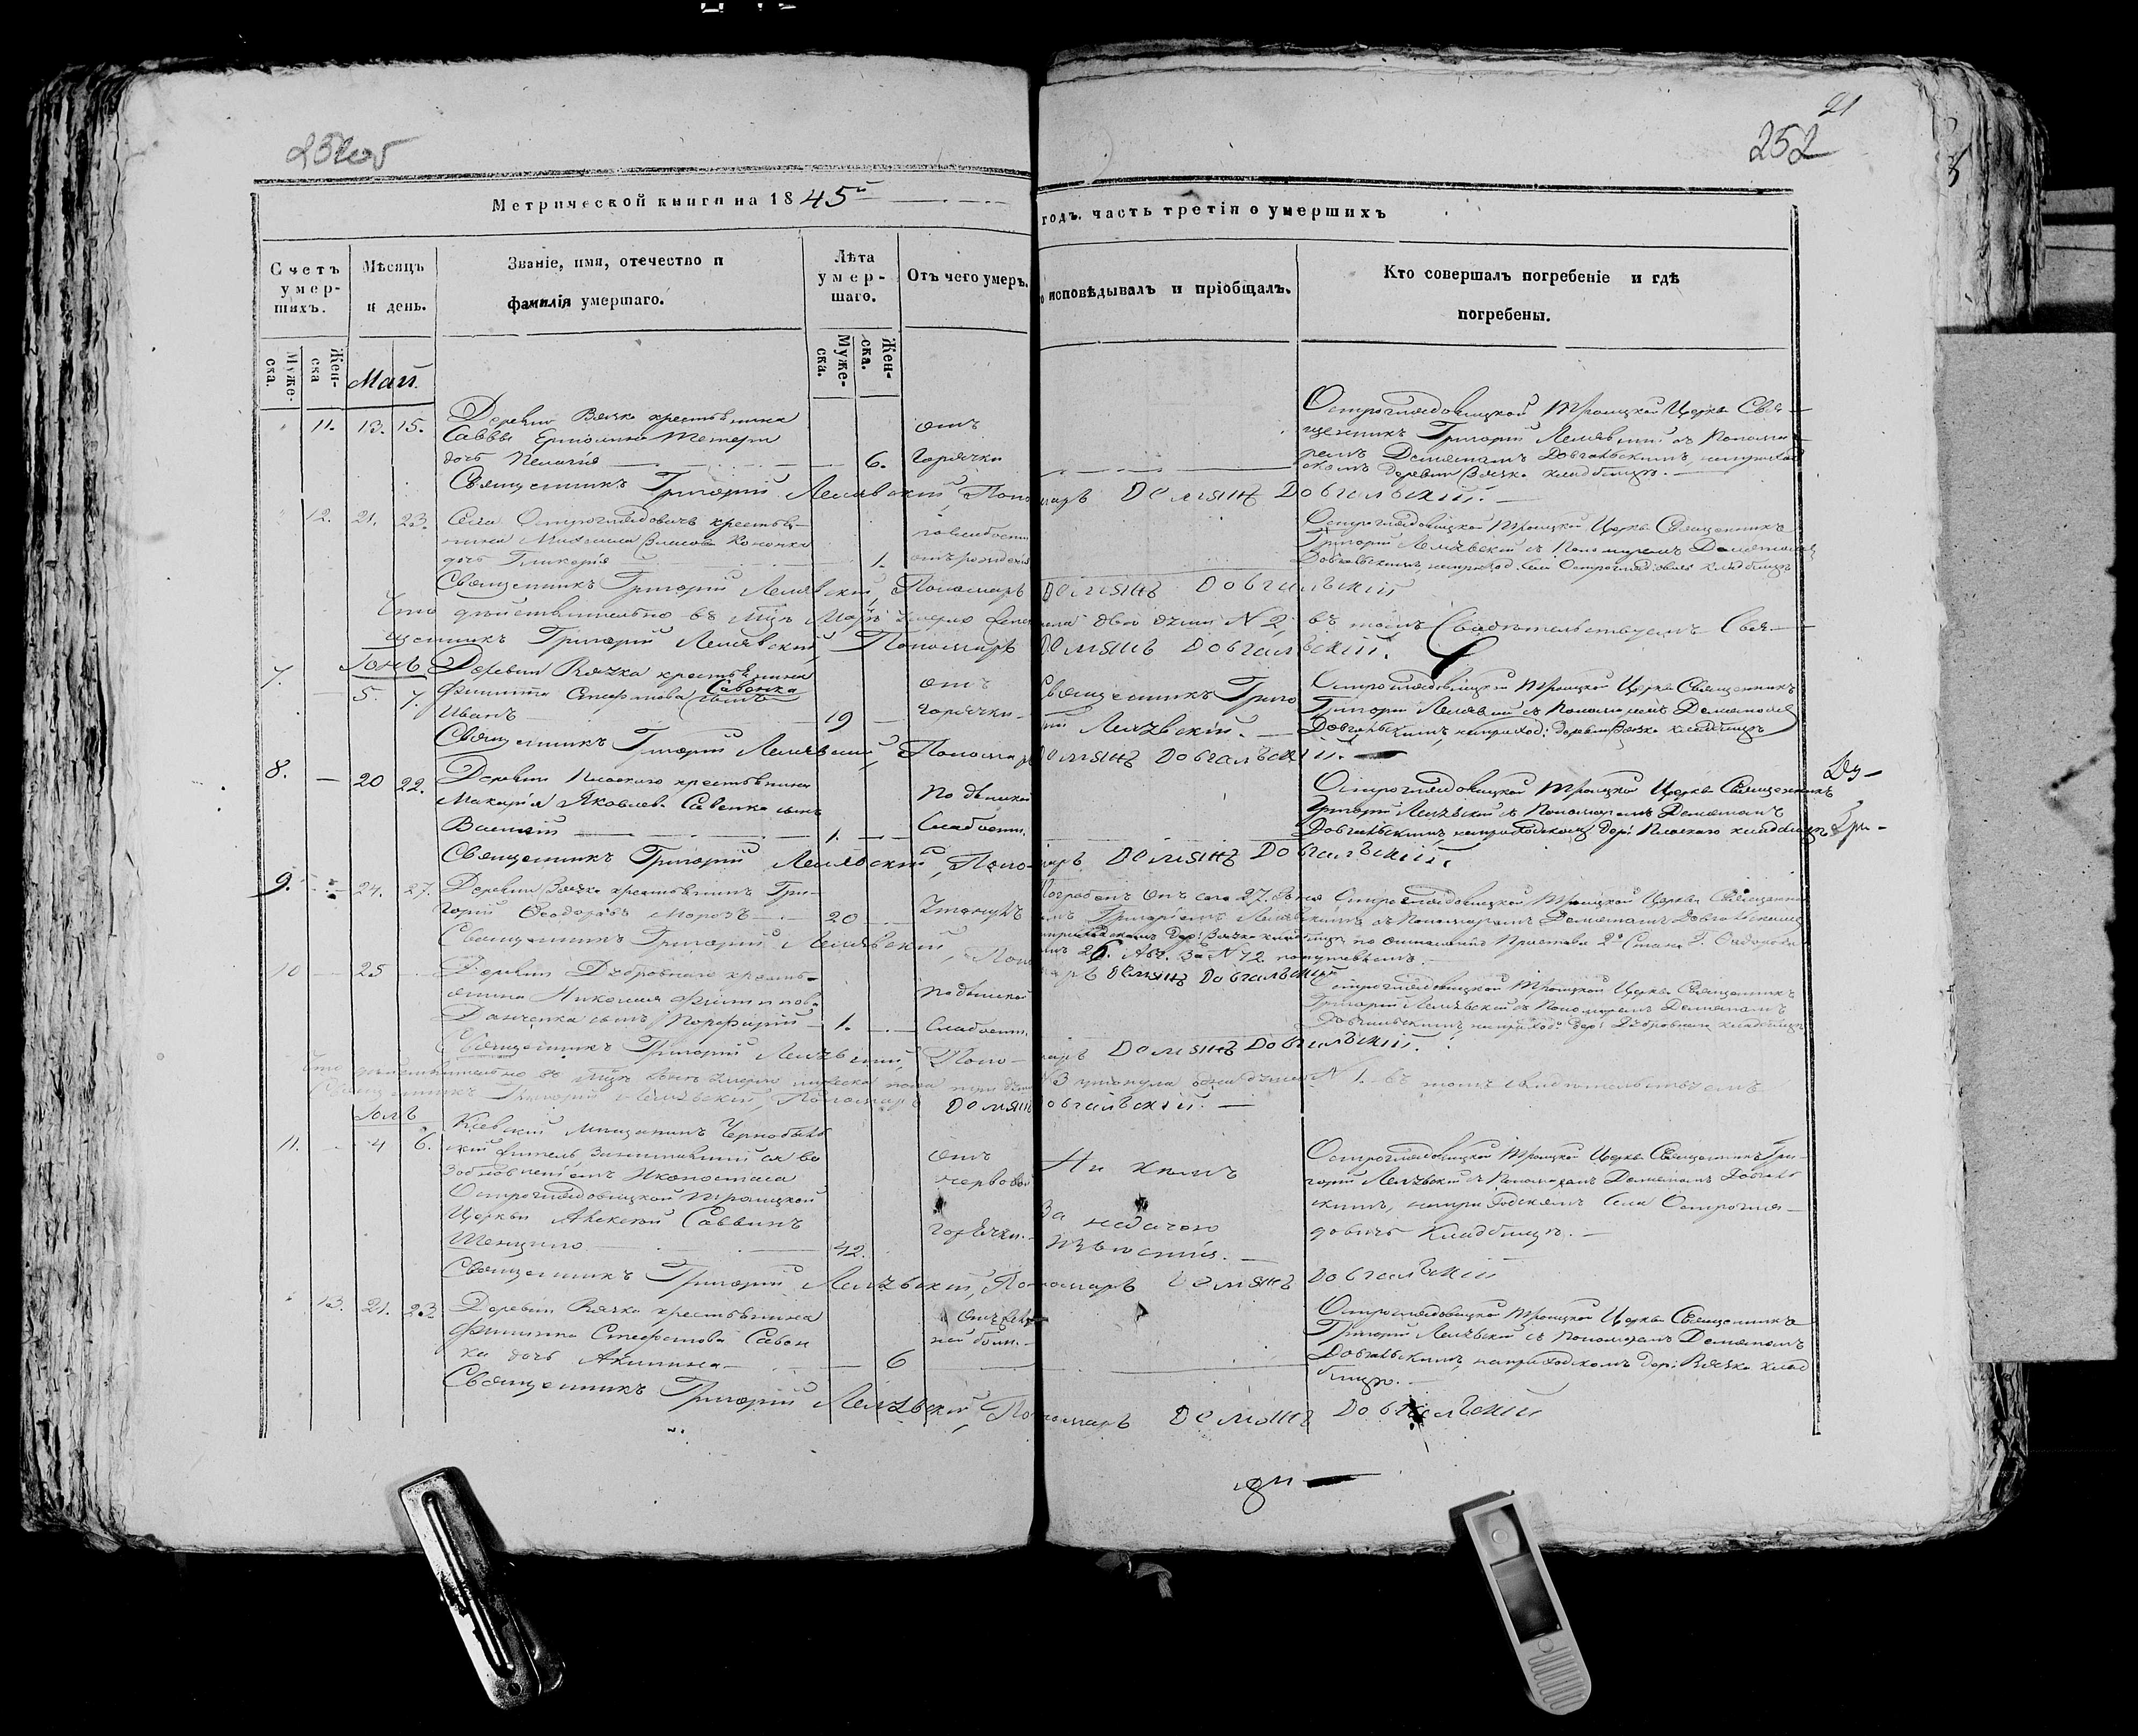 252об
21
252
Метрической книги на 1845й годъ. часть третія о умершихъ
Счетъ умершихъ.
Мѣсяцъ и день.
Званіе, имя, отечество и фамилія умершаго.
Лѣта умершаго.
Отъ чего умеръ.
исповѣдывалъ и пріобщалъ.
Кто совершалъ погребеніе и гдѣ погребены.
Мужеска.
Женска
Май.
Мужеска.
Женска.
11. 13. 15.
Деревни Вязка крестьянина
Саввы Ермолина Тетери
дочь Пелагія
6.
отъ
горячки
Остроглядовицкой Троицкой Церкви Свя-
щенникъ Григорій Лелявскій съ Понома-
ремъ Деміаномъ Довгяльскимъ, на приход
скомъ деревни Вязка кладбищѣ.
Священникъ Григорій Лелявскій, Пономарь Деміянъ Довгяльскій.
12. 21. 23.
Села Остроглядовичъ крестья-
нина Михаила Власова Кононка
дочь Гликерія
1.
по слабости
отъ рожденія
Остроглядовицкой Троицкой Церкви Священникъ
Григорій Лелявскій съ Пономаремъ Деміаномъ
Довгяльскимъ, на приход. села Остроглядовичъ кладбищѣ
Священникъ Григорій Лелявскій, Пономарь Деміянъ Довгяльскій
Что дѣйствительно въ Мцѣ Маѣ умерло женска пола двѣ души N 2, въ томъ Свидѣтельствуемъ Свя-
щенникъ Григорій Лелявскій, Пономарь Деміянъ Довгяльскій.
Іюнь
7. 5. 7.
Деревни Вязка крестьянина
Филиппа Стефанова Савенка сынъ
Иванъ
19
отъ
горячки
Священникъ Григо
рій Лелявскій.
Остроглядовицкой Троицкой Церкви Священникъ
Григорій Лелявскій съ Пономаремъ Деміаномъ
Довгяльскимъ, на приход: деревни Вязка кладбищѣ
Священникъ Григорій Лелявскій, Пономарь Деміянъ Довгяльскій.
8. 20 22.
Деревни Плоского крестьянина
Макарія Яковлева Савенка сынъ
Василій
1.
По дѣтской
Слабости.
Остроглядовицкой Троицкой Церкви Священникъ
Григорій Лелявскій съ Пономаремъ Деміаномъ
Довгяльскимъ, на приходскомъ дер: Плоского кладбищѣ
Священникъ Григорій Лелявскій, Пономарь Деміянъ Довгяльскій.
9. 24. 27.
Деревни Вязка крестьянинъ Гри-
горій Ѳеодоровъ Морозъ
20
Утонулъ
Погребенъ онъ сего 27. Іюня Остроглядовицкой Троицкой Церкви Священни
комъ Григоріемъ Лелявскимъ съ Пономаремъ Деміаномъ Довгяльскимъ
на приходскомъ дер: Вязка кладбищѣ по отношенію Пристава 2го Стана Г.
за N 72
Священникъ Григорій Лелявскій, Пономарь Деміянъ Довгяльскій
10 25
Деревни Дубровного крестья-
янина Николая Филиппова
Данченка сынъ Порфирій
1.
По дѣтской
Слабости.
Остроглядовицкой Троицкой Церкви Священникъ
Григорій Лелявскій съ Пономаремъ Деміаномъ
Довгяльскимъ, на приход: дер: Дубровного кладбищѣ
Священникъ Григорій Лелявскій, Пономарь Деміянъ Довгяльскій.
Что дѣйствительно въ Мцѣ Іюнѣ умерло мужеска пола три души N 3 утонула одна душа N 1. въ томъ свидѣтельствуемъ
Священникъ Григорій Лелявскій, Пономарь Деміянъ Довгяльскій.
Іюль
11. 4 6.
Кіевскій мещанинъ Чернобыль
скій житель занимавшійся во
зобновленіемъ Иконостаса
Остроглядовицкой Троицкой
Церкви Алексѣй Саввинъ
42.
отъ
нервовой
горячки.
Ни кѣмъ
За недачею
извѣстія.
Остроглядовицкой Троицкой Церкви Священникъ Гри-
горій Лелявскій съ Пономаремъ Деміаномъ Довгяль
скимъ, на приходскомъ села Острогля-
довичъ кладбищѣ.
Священникъ Григорій Лелявскій, Пономарь Деміянъ Довгяльскій
13. 21. 23
Деревни Вязка крестьянина
Филиппа Стефанова Савен
ка дочь Акилина
6
Остроглядовицкой Троицкой Церкви Священникъ
Григорій Лелявскій съ Пономаремъ Деміаномъ
Довгяльскимъ, на приходскомъ дер: Вязка клад
бищѣ.
Священникъ Григорій Лелявскій, Пономарь Деміянъ Довгяльскій